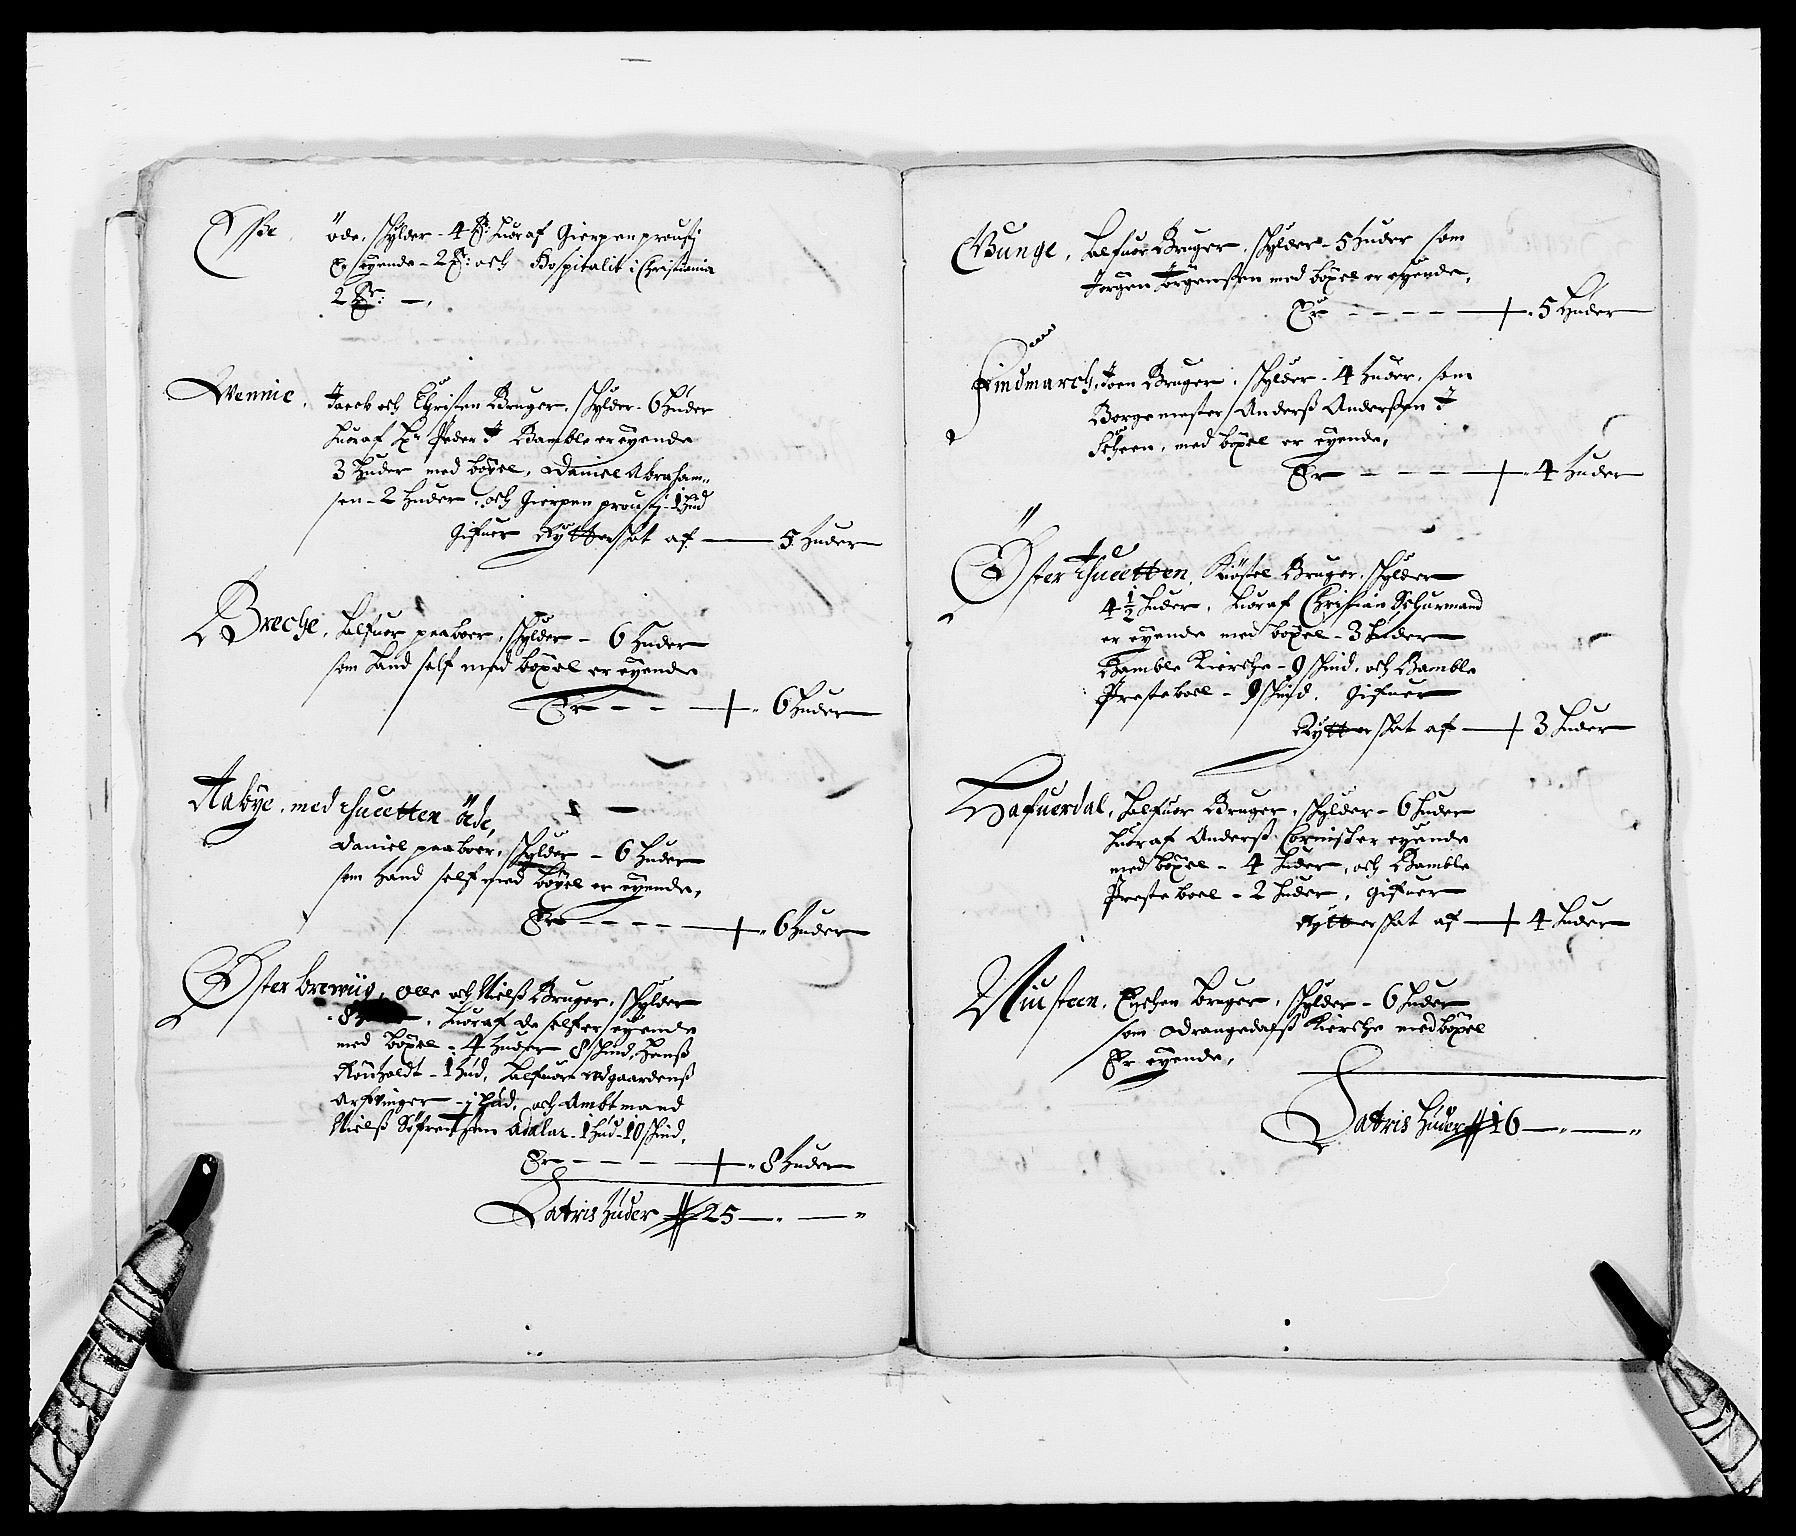 öde, skylder - 4 Huoraf Gierpen proustj
Er eyende - 2 och Hospitalit i Christiania
2
Wennie, Jacob och Christen Bruger, skylder - 6 Huder
huoraf Hr Peder J Bamble er eyende
3 Huder med böxel, Daniel Abraham-
sen - 2 Huder, och Gierpen proustj - 1 Hud
Gifuer Rytterskat af — 5 Huder
Breche, Halfuor paaboer, skylder - 6 Huder
som Hand self med böxel er eyende
Er - - - 6 Huder
Aabÿe, med Huetten öde,
Daniel paaboer, skylder - 6 Huder
som Hand self med böxel er eyende,
Er - - - - 6 Huder
Öster brewiig, Olle och Nielß Bruger, skylder
8 huoraf de self er eyende
med böxel - 4 Huder 8 skind, Hanß
- 1 Hud, Halfuor
Arfvinger - 1 Hud, och Ambtmand
Nielß Söfrensen Adelar - 1 Hud - 10 skind,
Er - - - - 8 Huder
Latris Huder 25 —
Bunge, Halfuor Bruger, skylder - 5 Huder som
Jörgen Jörgenßen med böxel er eyende,
Er - - - - 5 Huder
Findmarch, Joen Bruger, skylder - 4 Huder, som
Borgemester Anderß Anderßen J
Scheen, med böxel er eyende,
Er - - - - 4 Huder
Öster Huetten, Bruger, skylder
4 1/2 Huder, huoraf Christian Schurmand
er eyende med böxel - 3 Huder
Bamble Kierche - 9 skind, och Bamble
Presteboel - 9 skind, Gifuer
Rytterskat af — 3 Huder
Hafuerdal, Halfuor Bruger, skylder - 6 Huder
huoraf Anderß er eyende
med böxel - 4 Huder, och Bamble
Presteboel - 2 Huder, Gifuer
Rytterskat af — 4 Huder
Niusteen, Bruger, skylder - 6 Huder
som Drangedalß Kierche med böxel
Er eyende,
Latris Huder 16 —